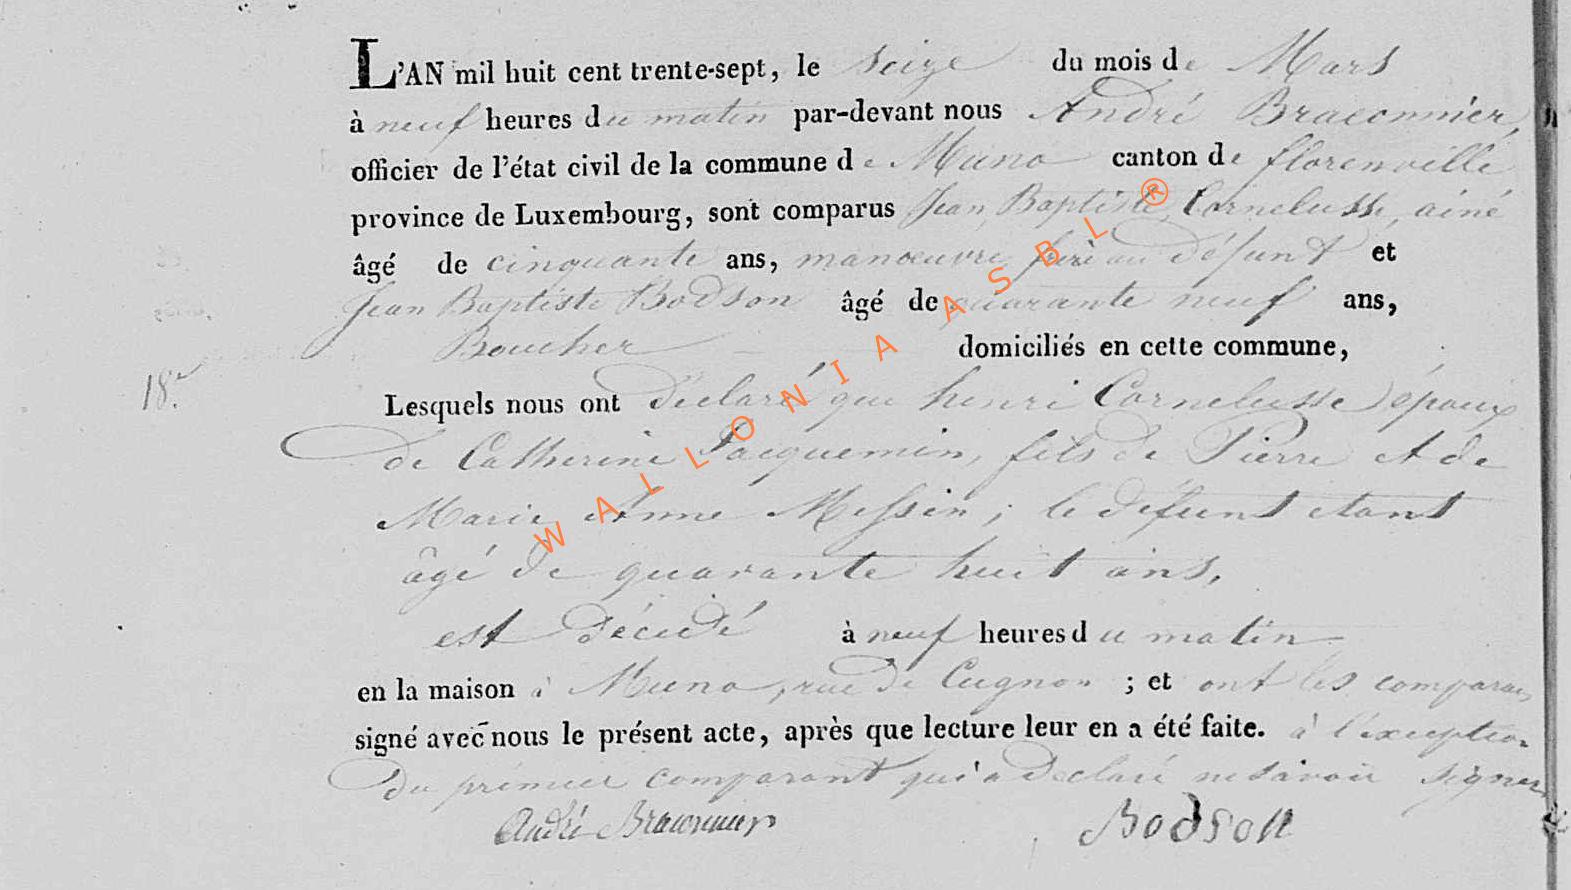 L'AN mil huit cent trente-sept, le seize du mois de Mars
à neuf heures du matin par-devant nous André Braconnier,
officier de l'état civil de la commune de Muno canton de florenville
province de Luxembourg, sont comparus Jean Baptiste Cornelusse, ainé
âgé de cinquante ans, manœuvre frère au défunt et
Jean Baptiste Bodson âgé de quarante neuf ans,
Boucher domiciliés en cette commune,
18.e
Lesquels nous ont déclaré que henri Cornelusse époux
de Catherine Jacquemin, fils de Pierre et de
Marie Anne Messin; le défunt etant
âgé de quarante huit ans,
est décédé à neuf heures du matin
en la maison à Muno, rue de Cugnon ; et ont les comparans
signé avec nous le présent acte, après que lecture leur en a été faite. à l'exception
du prémier comparant qui a declaré ne savoir signer
André Braconnier Bodson
WALLONIA ASBL ®